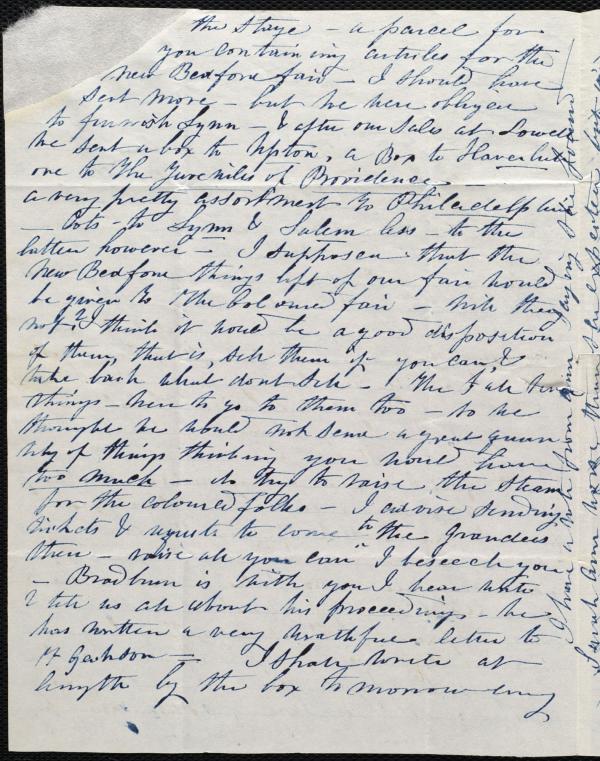 the Stage - a parcel for
you containing articles for the
New Bedford fair - I should have
sent more - but we were obliged
to furnish Lynn - & after our sales at Lowell
we sent a box to Upton, a Box to Haverhill
one to the Juveniles of Providence -
a very pretty assortment to Philadelphia
- Lots - to Lynn & Salem Ass - to the
latter however - I supposed that the
New Bedford things left of our fair would
be given to the Coloured fair - will they
not? I think it would be a good disposition
of them, that is, sell them if you can, &
take back what dont sell - The Fall River
things - were to go to them too - so we
thought we would not send a great quan
tity of things thinking you would have
too much - do try to raise the steam
for the coloured folks - I advise sending
tickets & requests to come to the Grandees
there - raise all you can I beseech you
- Bradburn is with you I hear write
& tell us all about his proceedings - he
has written a very wrathful letter to
H Jackson - I shall write at
length by the box tomorrow
I have a note from Lynn saying she found
Sarah Ann worse than she expected but